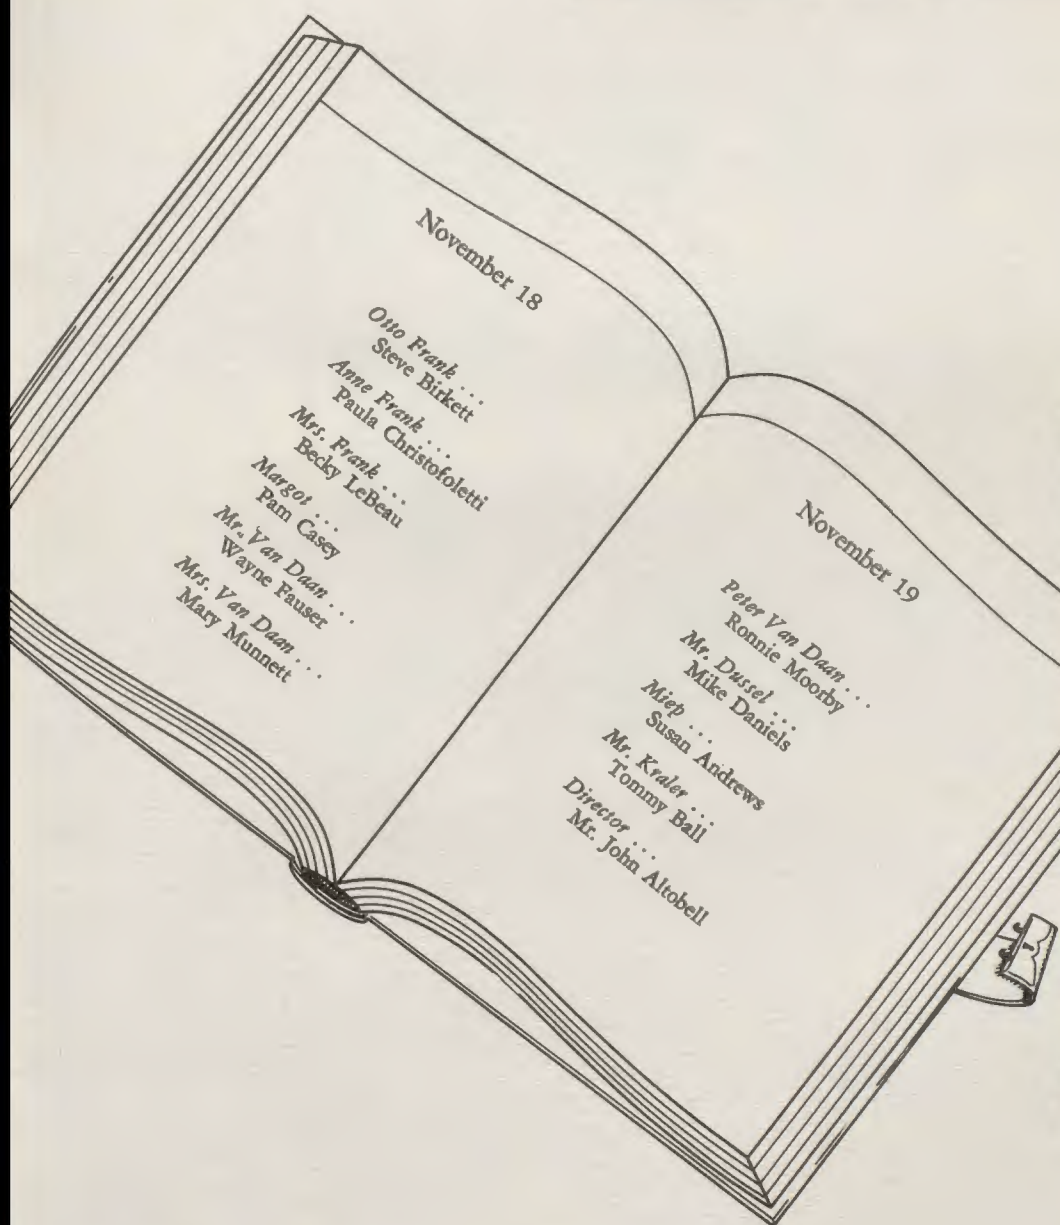 November 18
Otto Frank . . .
Steve Birkett
Anne Frank . . .
Paula Christofoletti
Mrs. Frank . . .
Becky LeBeau
Margot . . .
Pam Casey
Mr. Van Daan . . .
Wayne Fauser
Mrs. Van Daan . . .
Mary Munnett
November 19
Peter Van Daan . . .
Ronnie Moorby
Mr. Dussel . . .
Mike Daniels
Miep . . .
Susan Andrews
Mr. Kraler . . .
Tommy Ball
Director . . .
Mr. John Altobell